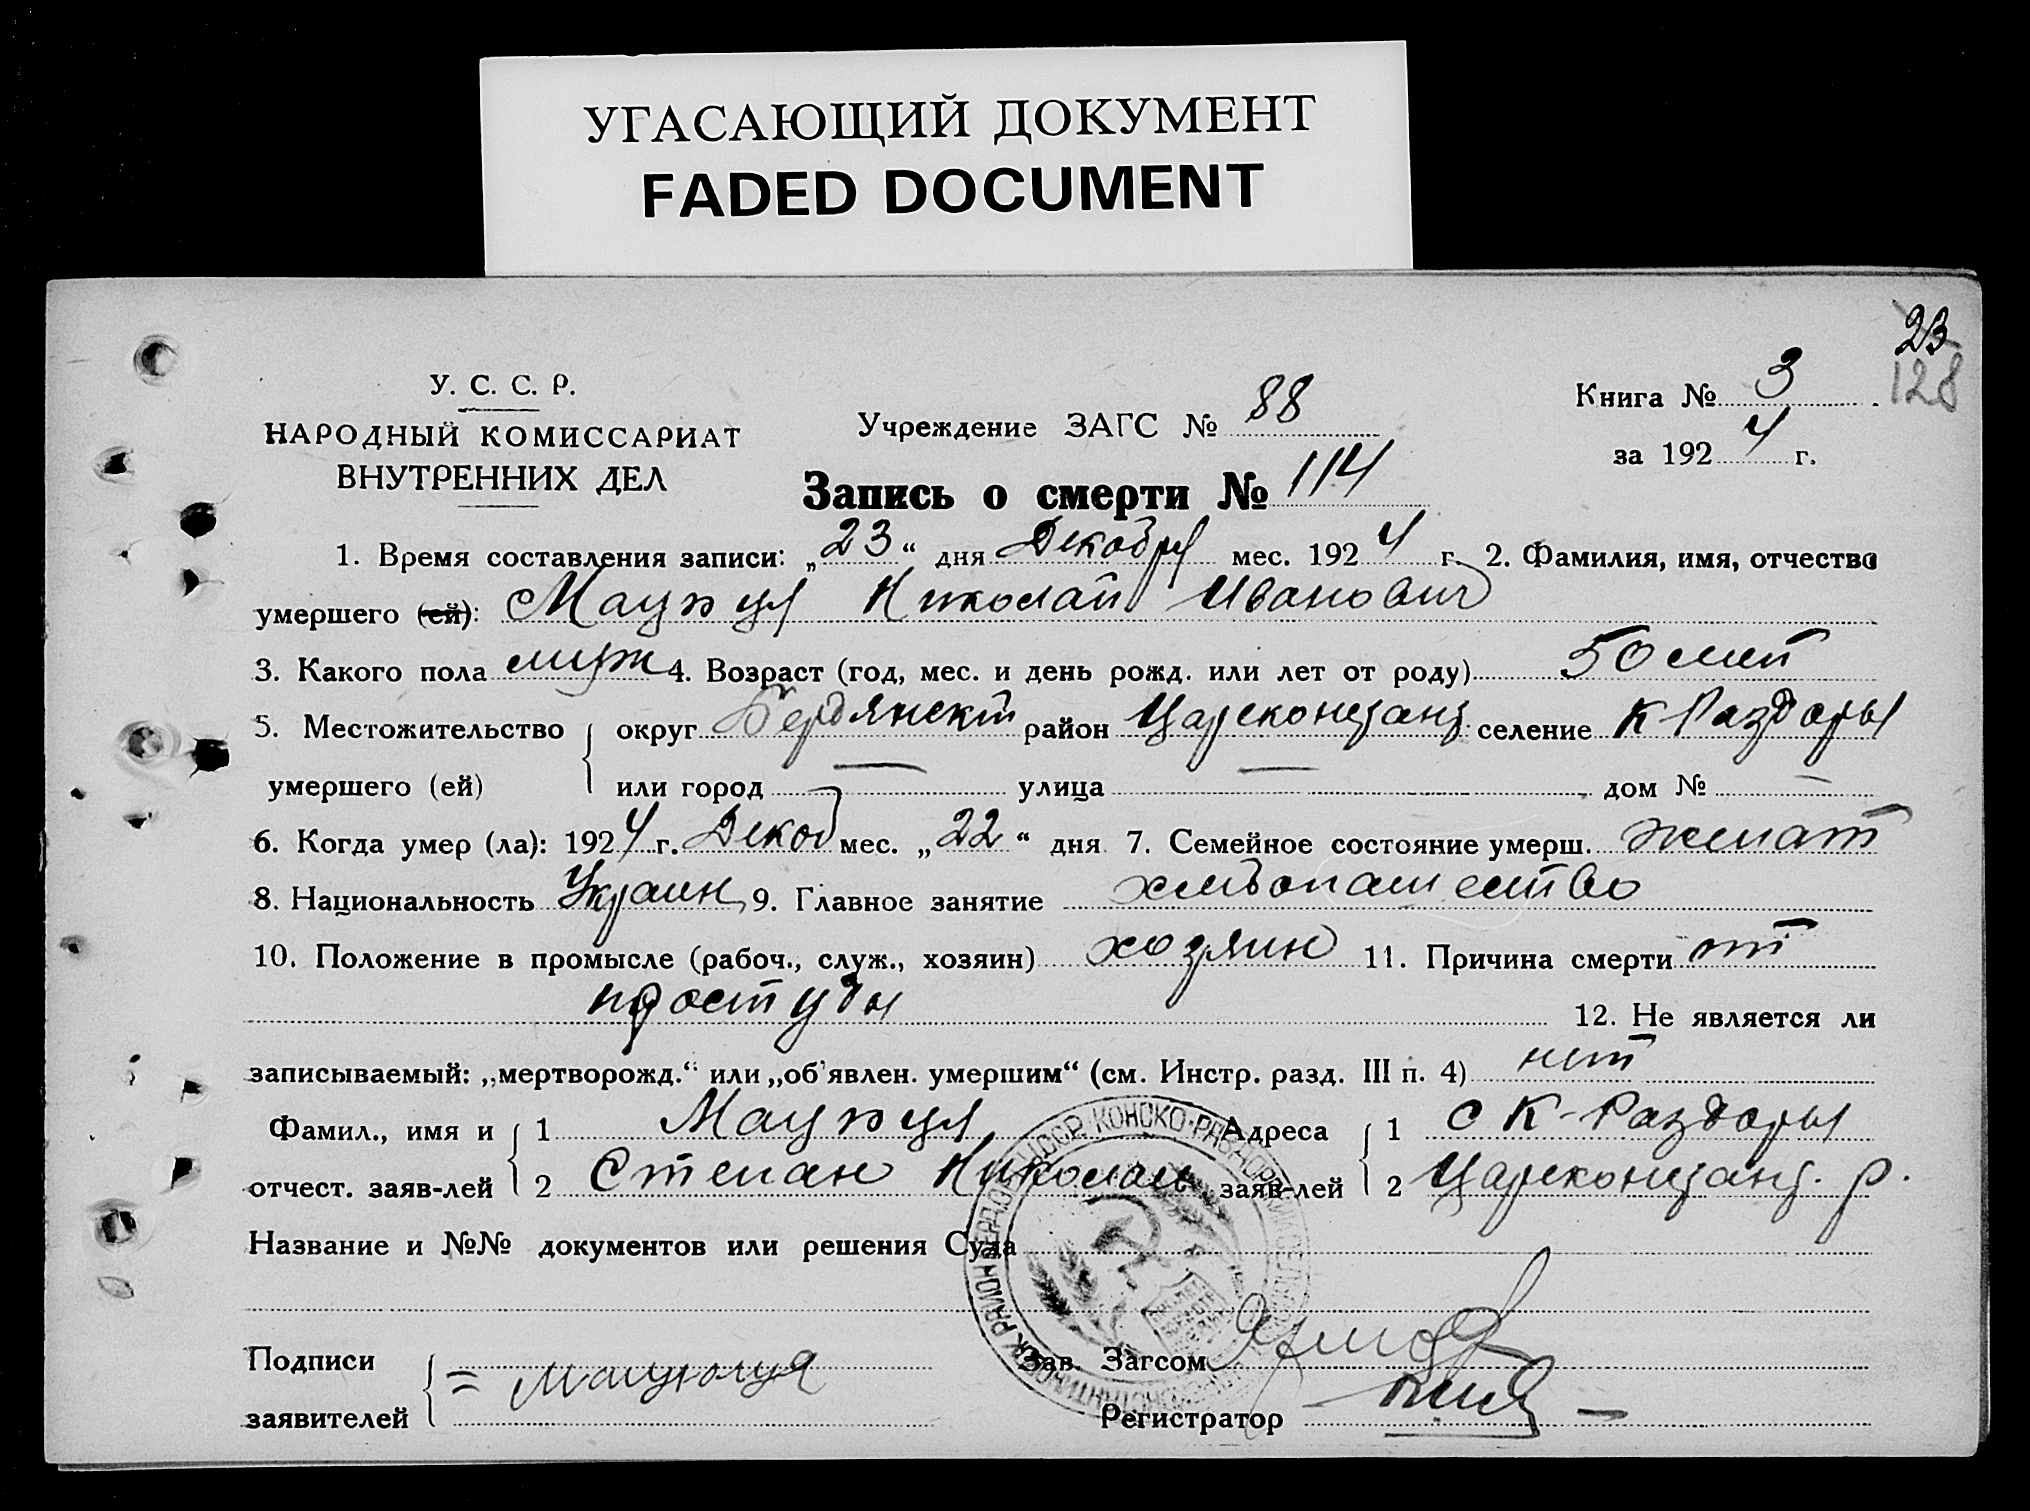 УГАСАЮЩИЙ ДОКУМЕНТ
FADED DOCUMENT
23
128
У. С. С. Р.
НАРОДНЫЙ КОМИССАРИАТ
ВНУТРЕННИХ ДЕЛ
Учреждение ЗАГС № 88
Книга № 3
за 1924 г.
Запись о смерти № 114
1. Время составления записи: „23“ дня Декабря мес. 1924 г. 2. Фамилия, имя, отчество
умершего (ей): Николай Иванович
3. Какого пола муж 4. Возраст (год, мес. и день рожд. или лет от роду) 50 лет
5. Местожительство округ Бердянск район Цареконстант. селение К Раздоры
умершего (ей) или город — улица — дом № —
6. Когда умер (ла): 1924 г. Декаб мес. „22“ дня 7. Семейное состояние умерш. женат
8. Национальность Украин 9. Главное занятие хлебопашество
10. Положение в промысле (рабоч., служ., хозяин) хозяин 11. Причина смерти от
простуды 12. Не является ли
записываемый: „мертворожд.“ или „об'явлен. умершим“ (см. Инстр. разд. III п. 4) нет
Фамил., имя и 1 Адреса 1 с К-Раздоры
отчест. заяв-лей 2 Степан Николаев заяв-лей 2 Цареконстант. р.
Название и №№ документов или решения Суда
Подписи Зав. Загсом
заявителей Регистратор